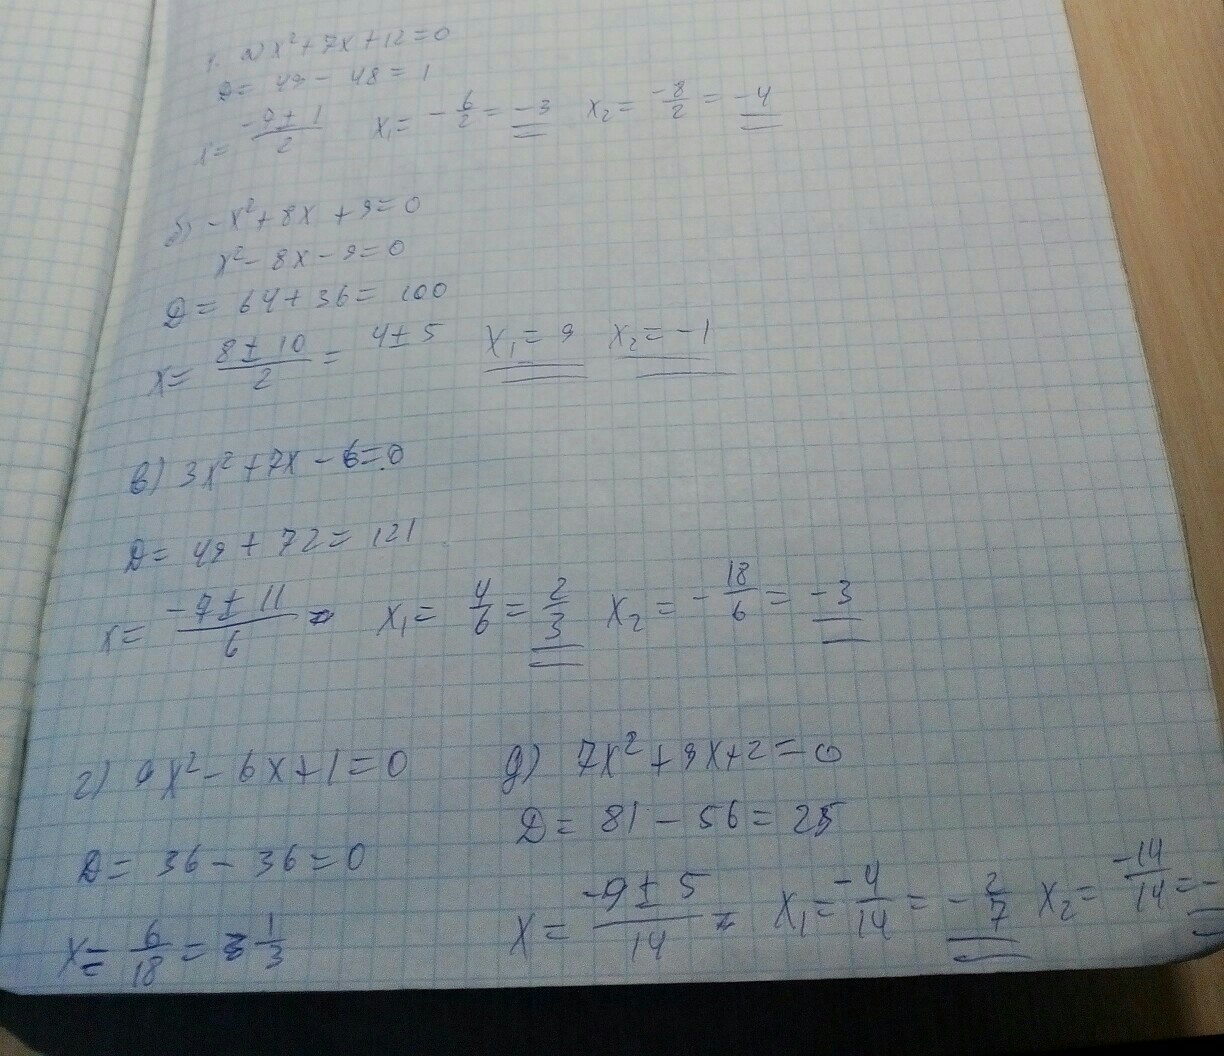 1. а) x² + 7x + 12 = 0
D = 49 - 48 = 1
x = (-7 ± 1)/2 x₁ = -6/2 = -3 x₂ = -8/2 = -4
б) -x² + 8x + 9 = 0
x² - 8x - 9 = 0
D = 64 + 36 = 100
x = (8 ± 10)/2 = 4 ± 5 x₁ = 9 x₂ = -1
в) 3x² + 7x - 6 = 0
D = 49 + 72 = 121
x = (-7 ± 11)/6 x₁ = 4/6 = 2/3 x₂ = -18/6 = -3
г) 9x² - 6x + 1 = 0
D = 36 - 36 = 0
x = 6/18 = 1/3
д) 7x² + 9x + 2 = 0
D = 81 - 56 = 25
x = (-9 ± 5)/14 x₁ = -4/14 = -2/7 x₂ = -14/14 = -